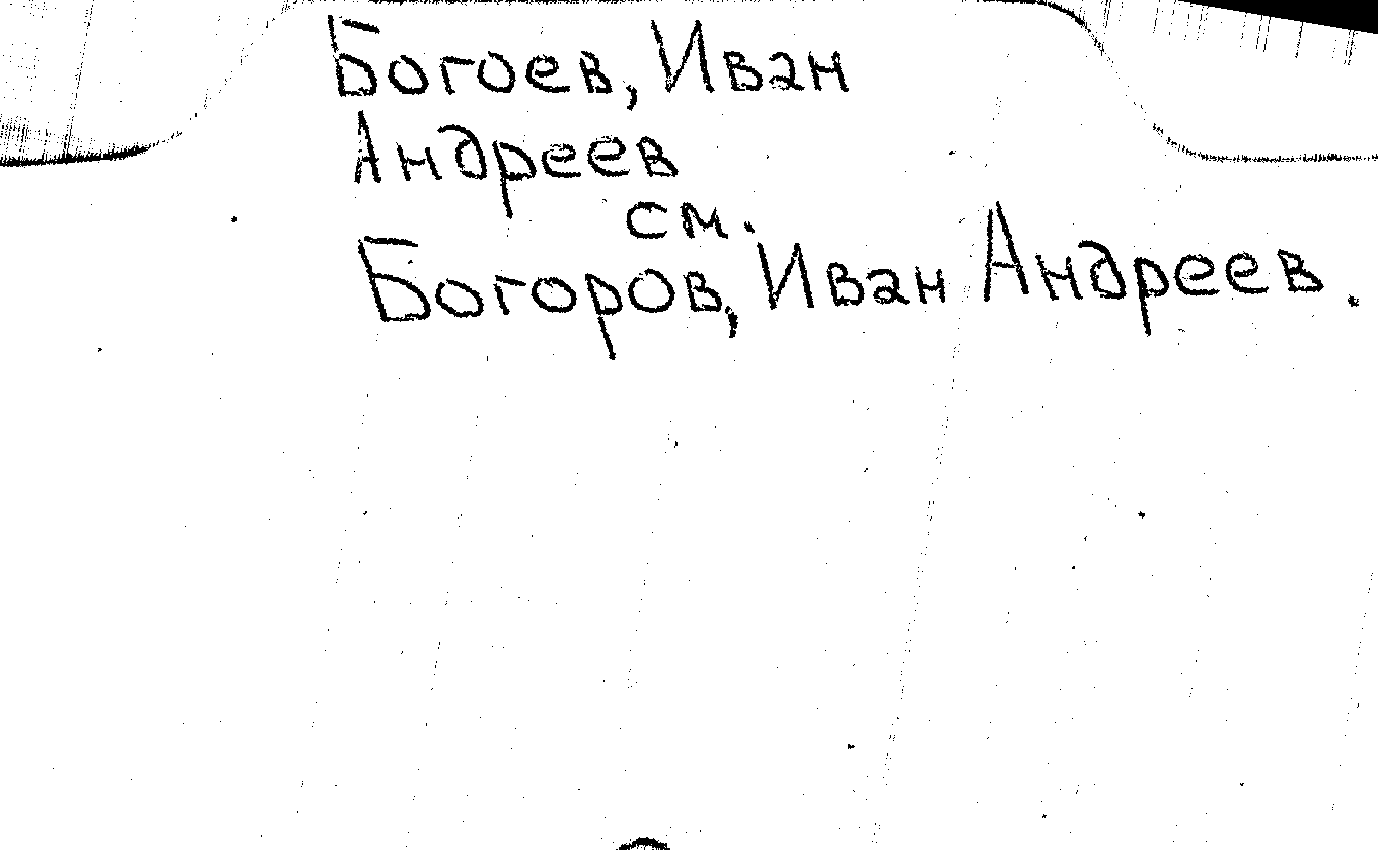 Богоев, Иван
Андреев
см.
Богоров, Иван Андреев.